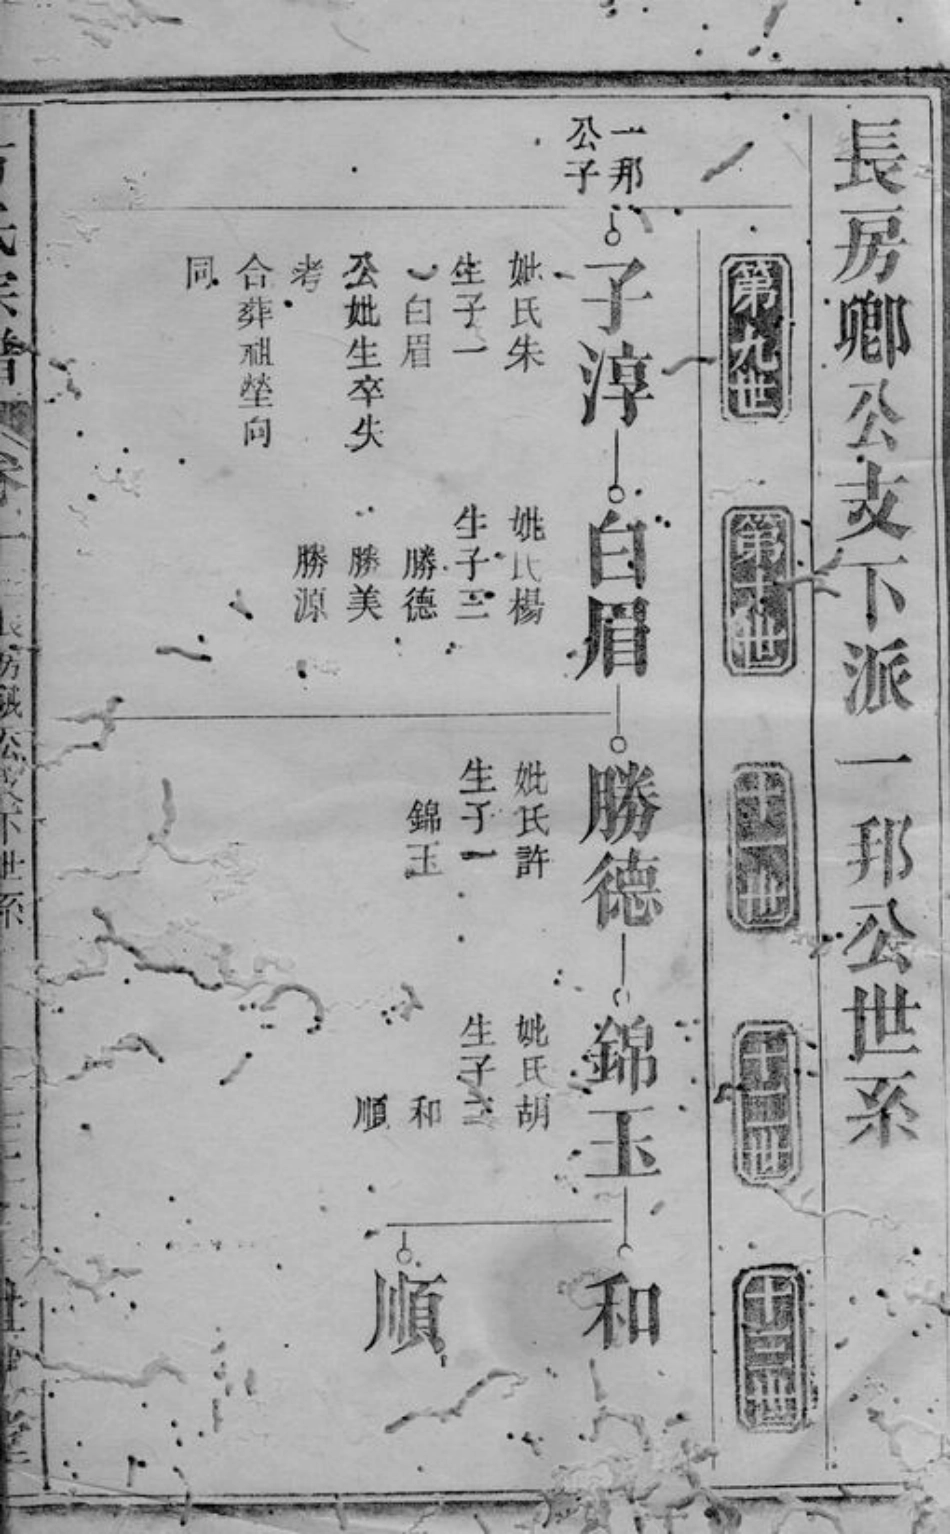 長房卿公支下派一邦公世系
第九世
第十世
十一世
十二世
十三世
一邦
公子
子淳
妣氏朱
生子一
白眉
公妣生卒失
考
合葬祖塋向
同
白眉
妣氏楊
生子三
勝德
勝美
勝源
勝德
妣氏許
生子一
錦玉
錦玉
妣氏胡
生子二
和
順
和
順
氏宗譜
卷一
長房
公支下世系